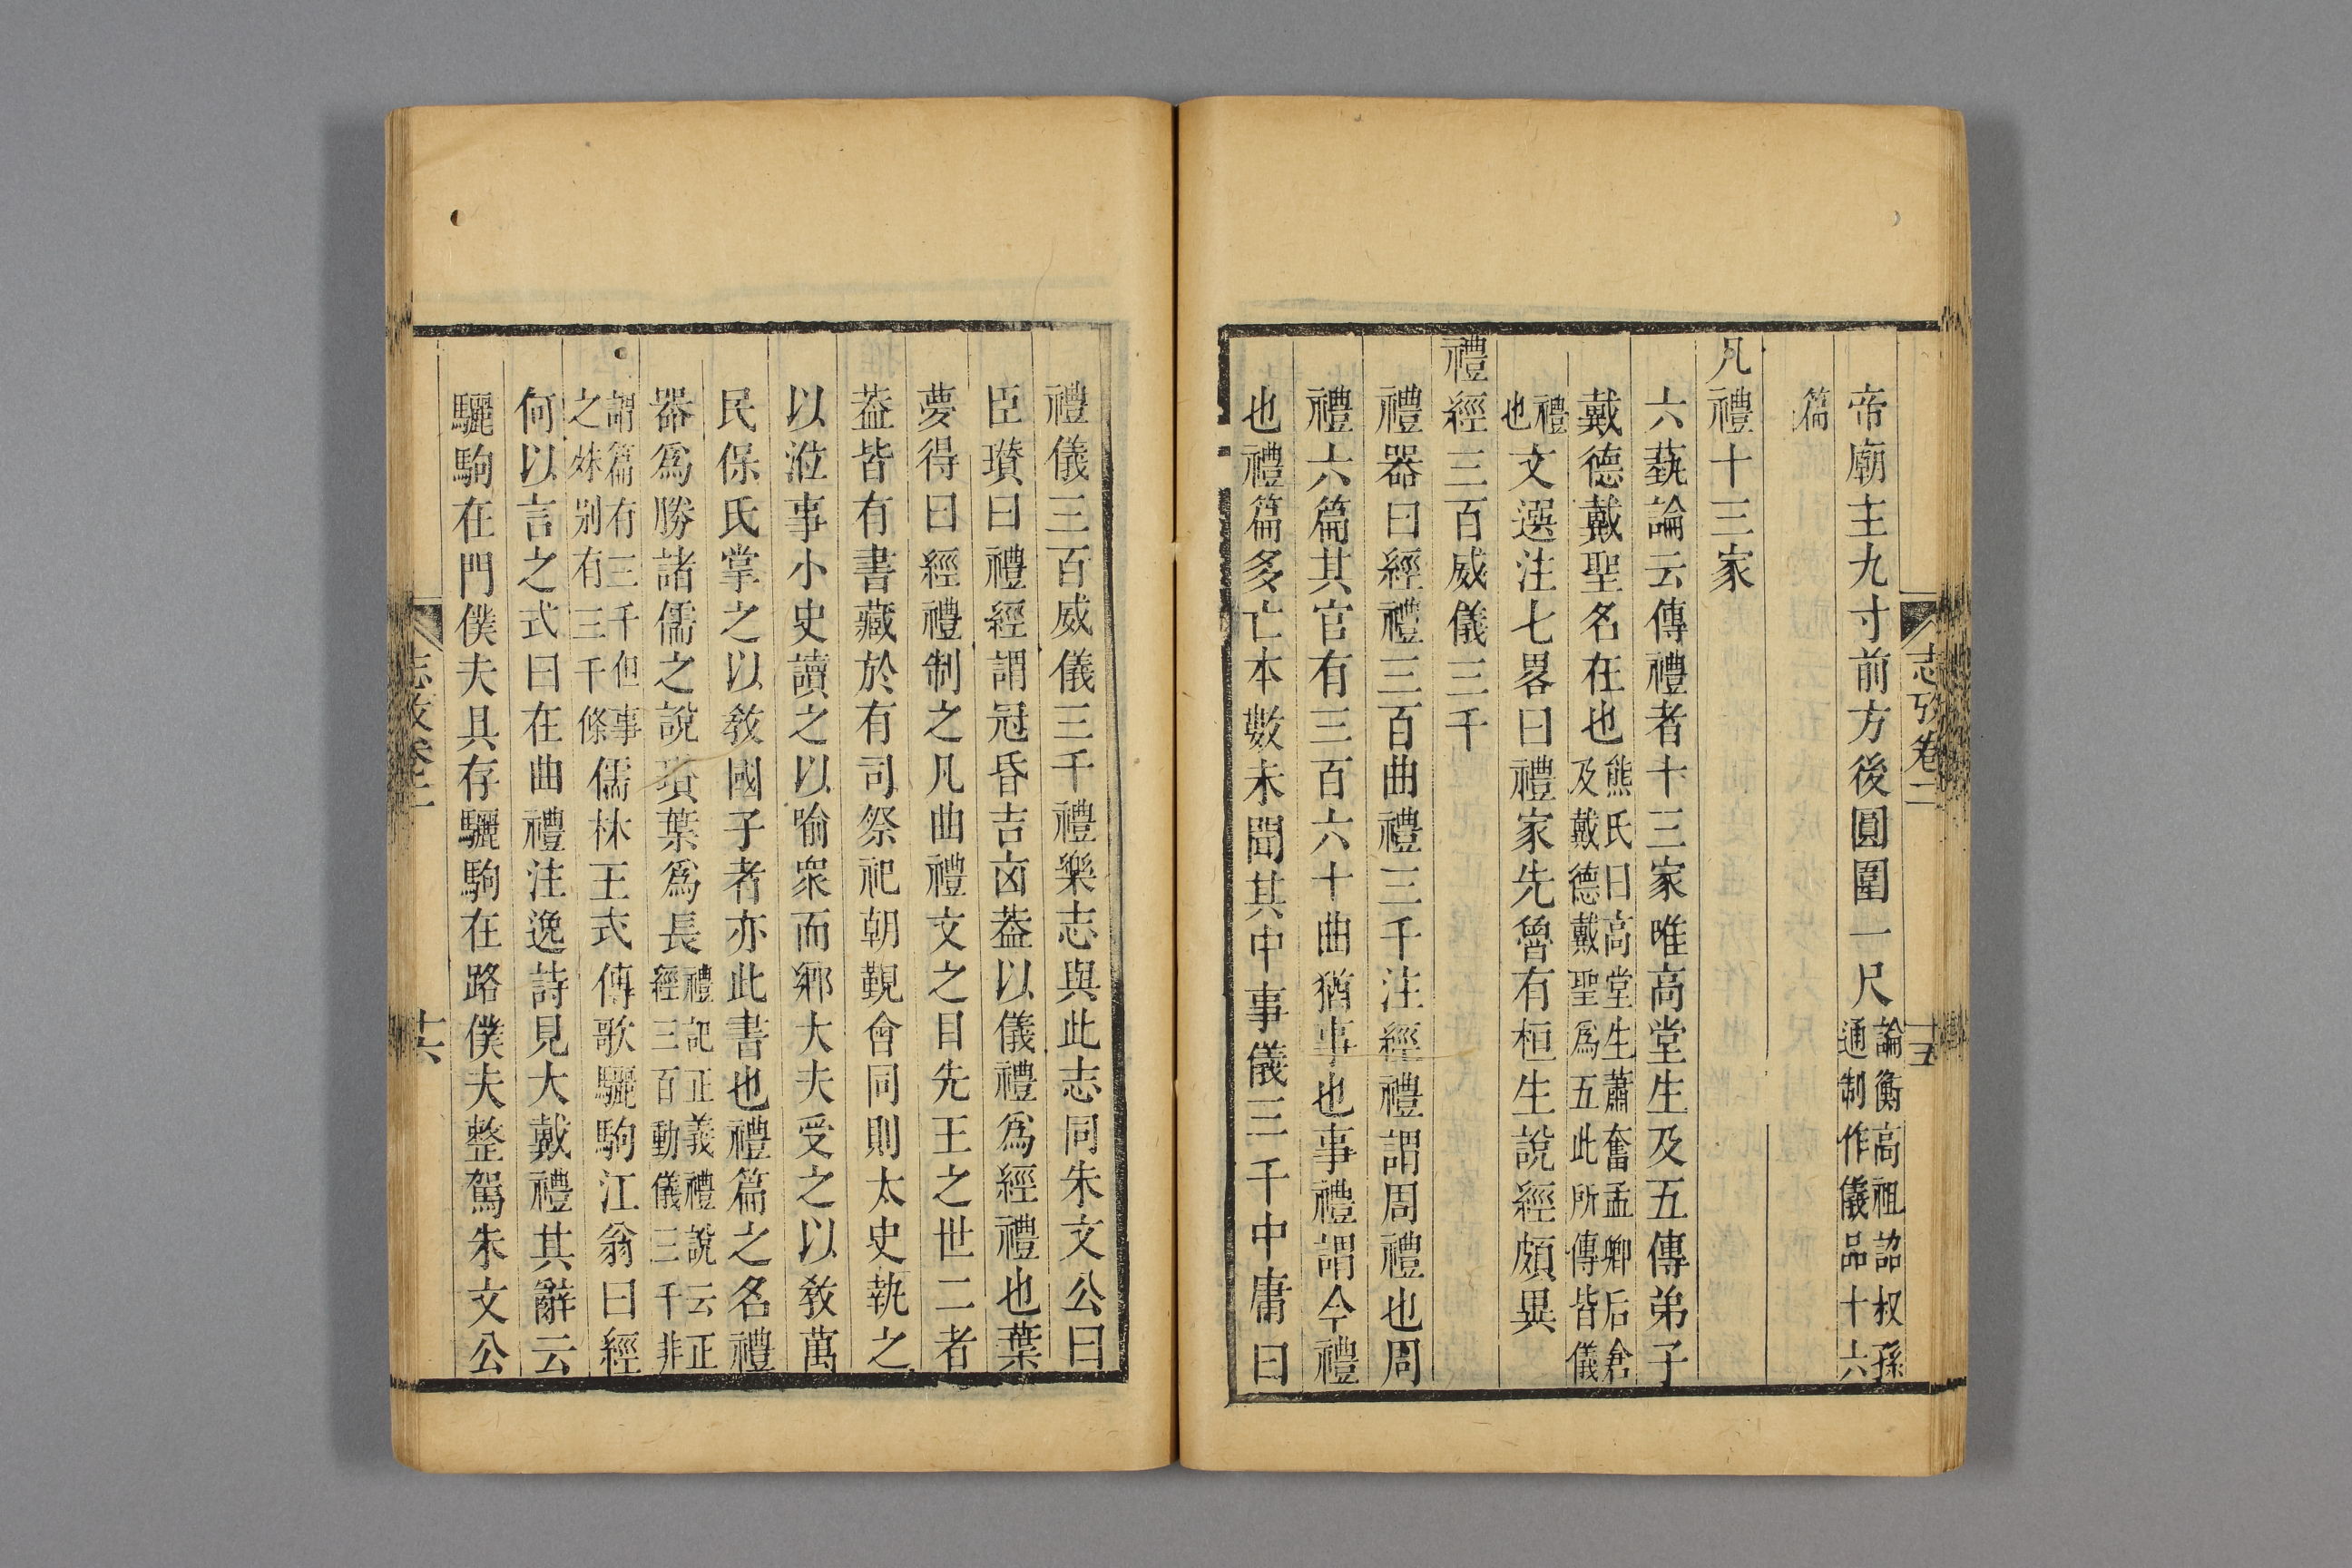 志攷卷二
十五
帝廟主九寸前方後圓圍一尺論衡高祖詔叔孫通制作儀品十六
篇
凡禮十三家
六蓺論云傳禮者十三家唯高堂生及五傳弟子
戴德戴聖名在也熊氏曰高堂生蕭奮孟卿后倉及戴德戴聖爲五此所傳皆儀
禮也文選注七畧曰禮家先魯有桓生說經頗異
禮經三百威儀三千
禮器曰經禮三百曲禮三千注經禮謂周禮也周
禮六篇其官有三百六十曲猶事也事禮謂今禮
也禮篇多亡本數未聞其中事儀三千中庸曰
禮儀三百威儀三千禮樂志與此志同朱文公曰
臣瓚曰禮經謂冠昏吉凶葢以儀禮爲經禮也葉
夢得曰經禮制之凡曲禮文之目先王之世二者
葢皆有書藏於有司祭祀朝覲會同則太史執之
以涖事小史讀之以喻衆而鄉大夫受之以敎萬
民保氏掌之以敎國子者亦此書也禮篇之名禮
器爲勝諸儒之說瓚葉爲長禮記正義禮說云正經三百動儀三千非
謂篇有三千但事之殊别有三千條儒林王式傳歌驪駒江翁曰經
何以言之式曰在曲禮注逸詩見大戴禮其辭云
驪駒在門僕夫具存驪駒在路僕夫整駕朱文公
志攷卷二
十六